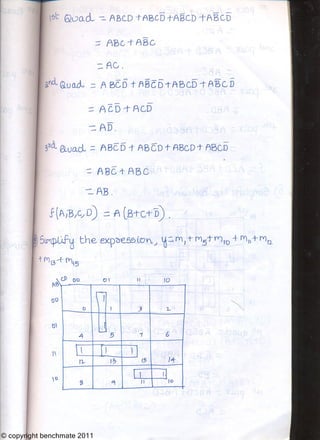 1st Quad = ABCD + ABCD̄ + AB̄CD + AB̄CD̄
= ABC + AB̄C
= AC.
2nd Quad = ABC̄D̄ + AB̄C̄D̄ + ABCD̄ + AB̄CD̄
= AC̄D̄ + ACD̄
= AD̄.
3rd Quad = ABC̄D̄ + ABC̄D + ABCD + ABCD̄
= ABC̄ + ABC
= AB.
f(A,B,C,D) = A(B+C+D̄).
Simplify the expression, y = m1 + m5 + m10 + m11 + m12
+ m13 + m15
AB CD 00 01 11 10
00 0 1 1 3 2
01 4 1 5 7 6
11 1 12 1 13 1 15 14
10 8 9 1 11 1 10
© copyright benchmate 2011